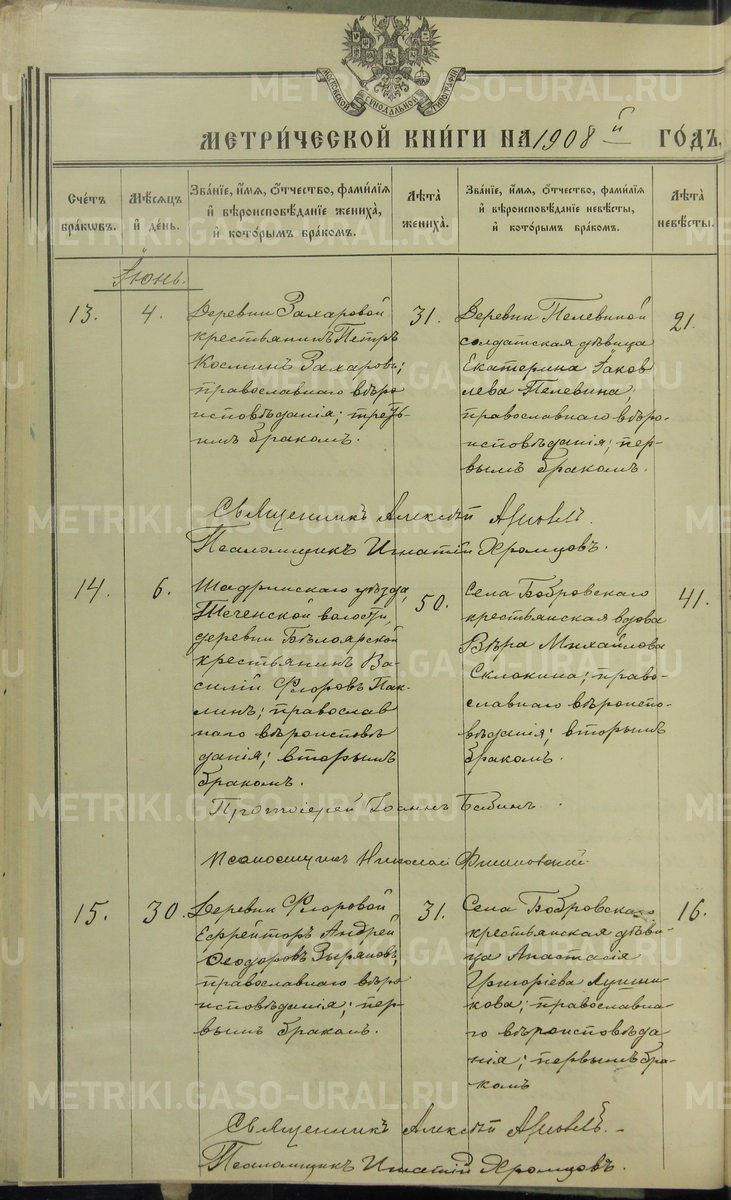 МОСКОВСКОЙ СѴНОДАЛЬНОЙ ТИПОГРАФІИ
МЕТРИ́ЧЕСКОЙ КНИ́ГИ НА 1908 й ГО́ДЪ,
Сче́тъ бра́кѡвъ.
Мѣ́сѧцъ и҆ де́нь.
Зва́нїе, и҆́мѧ, ѻ҆́тчество, фами́лїѧ
и҆ вѣроисповѣ́данїе жениха̀,
и҆ кото́рымъ бра́комъ.
Лѣта̀ жениха̀.
Зва́нїе, и҆́мѧ, ѻ҆́тчество, фами́лїѧ
и҆ вѣроисповѣ́данїе невѣ́сты,
и҆ кото́рымъ бра́комъ.
Лѣта̀ невѣ́сты.
Іюнь.
13.
4.
Деревни Захаровой
крестьянинъ Петръ
Космин Захаровъ;
православнаго вѣро
исповѣданія; треть
имъ бракомъ.
31.
Деревни Пелевиной
солдатская дѣвица
Екатерина Іаков
лева Пелевина,
православнаго вѣро-
исповѣданія; пер-
вымъ бракомъ.
21.
Священникъ Алексѣй
Псаломщикъ Игнатій Хромцовъ.
14.
6.
Шадринскаго уѣзда,
Теченской волости,
деревни Бѣлоярской
крестьянинъ Ва-
силій Флоровъ Пак-
линъ; православ
наго вѣроисповѣ
данія; вторымъ
бракомъ.
50.
Села Бобровскаго
крестьянская вдова
Вѣра Михайлова
Склокина; право-
славнаго вѣроиспо-
вѣданія; вторымъ
бракомъ.
41.
Протоіерей Іоаннъ Бабинъ.
Псаломщикъ Николай
15.
30.
Деревни Флоровой
Ефрейторъ Андрей
Ѳеодоровъ Зыряновъ,
православнаго вѣро
исповѣданія; пер-
вымъ бракомъ.
31.
Села Бобровскаго
крестьянская дѣви-
ца Анастасія
Григоріева
кова; православна-
го вѣроисповѣда
нія; первымъ бра-
комъ
16.
Священникъ Алексѣй
Псаломщикъ Игнатій Хромцовъ.
METRIKI.GASO-URAL.RU